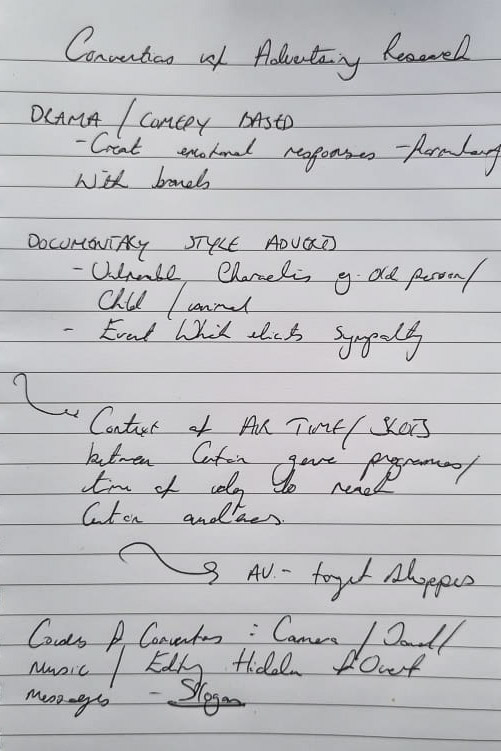 Conventions of Advertising Research
DRAMA / COMEDY BASED
- Creat emotional responses - familiarity
With brands
DOCUMENTARY STYLE ADVERTS
- Vulnerable Characters eg. Old person/
Child / animal
- Event Which elicits Sympathy
Context of AIR TIME/ SLOTS
between Certain genre programmes/
time of day to reach
Certain audiences.
- target Shoppers
Codes & Conventions : Camera / Sound/
Music / Editing Hidden & Overt
Messages - Slogans